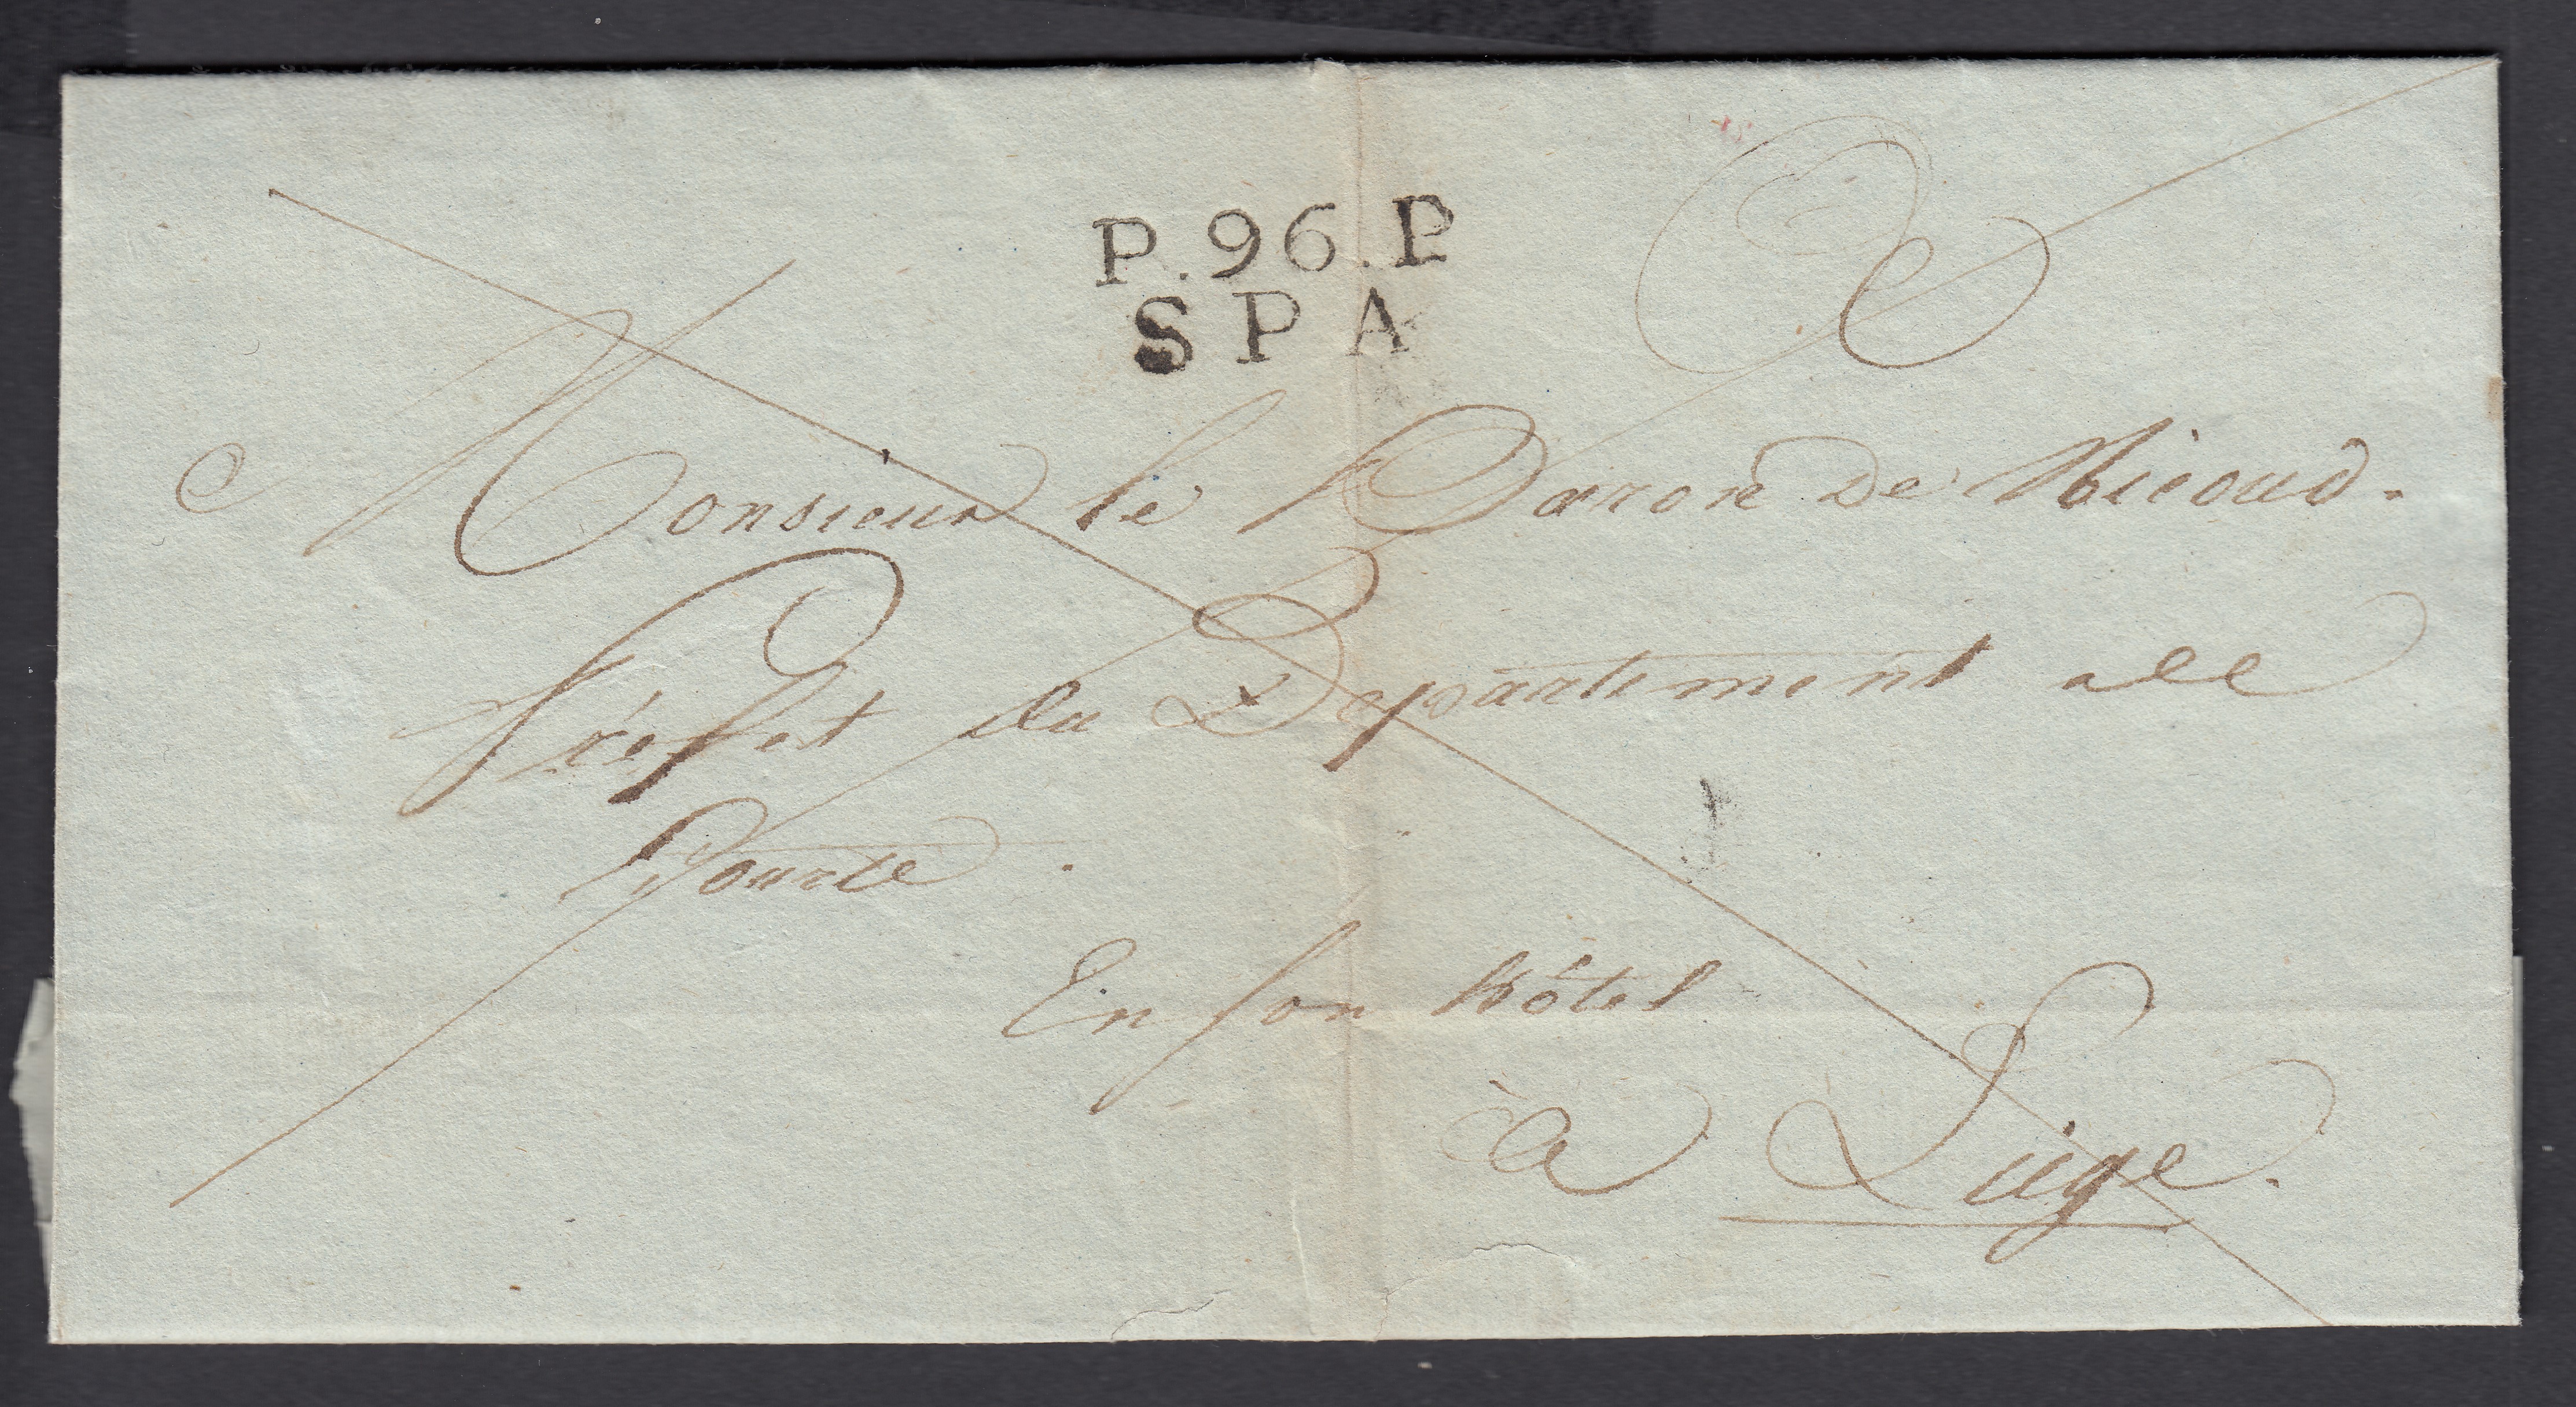 P.96.P
SPA
Monsieur le Baron De Micoud.
Préfet du Departement de l
Ourte.
En son hôtel
à Liége.